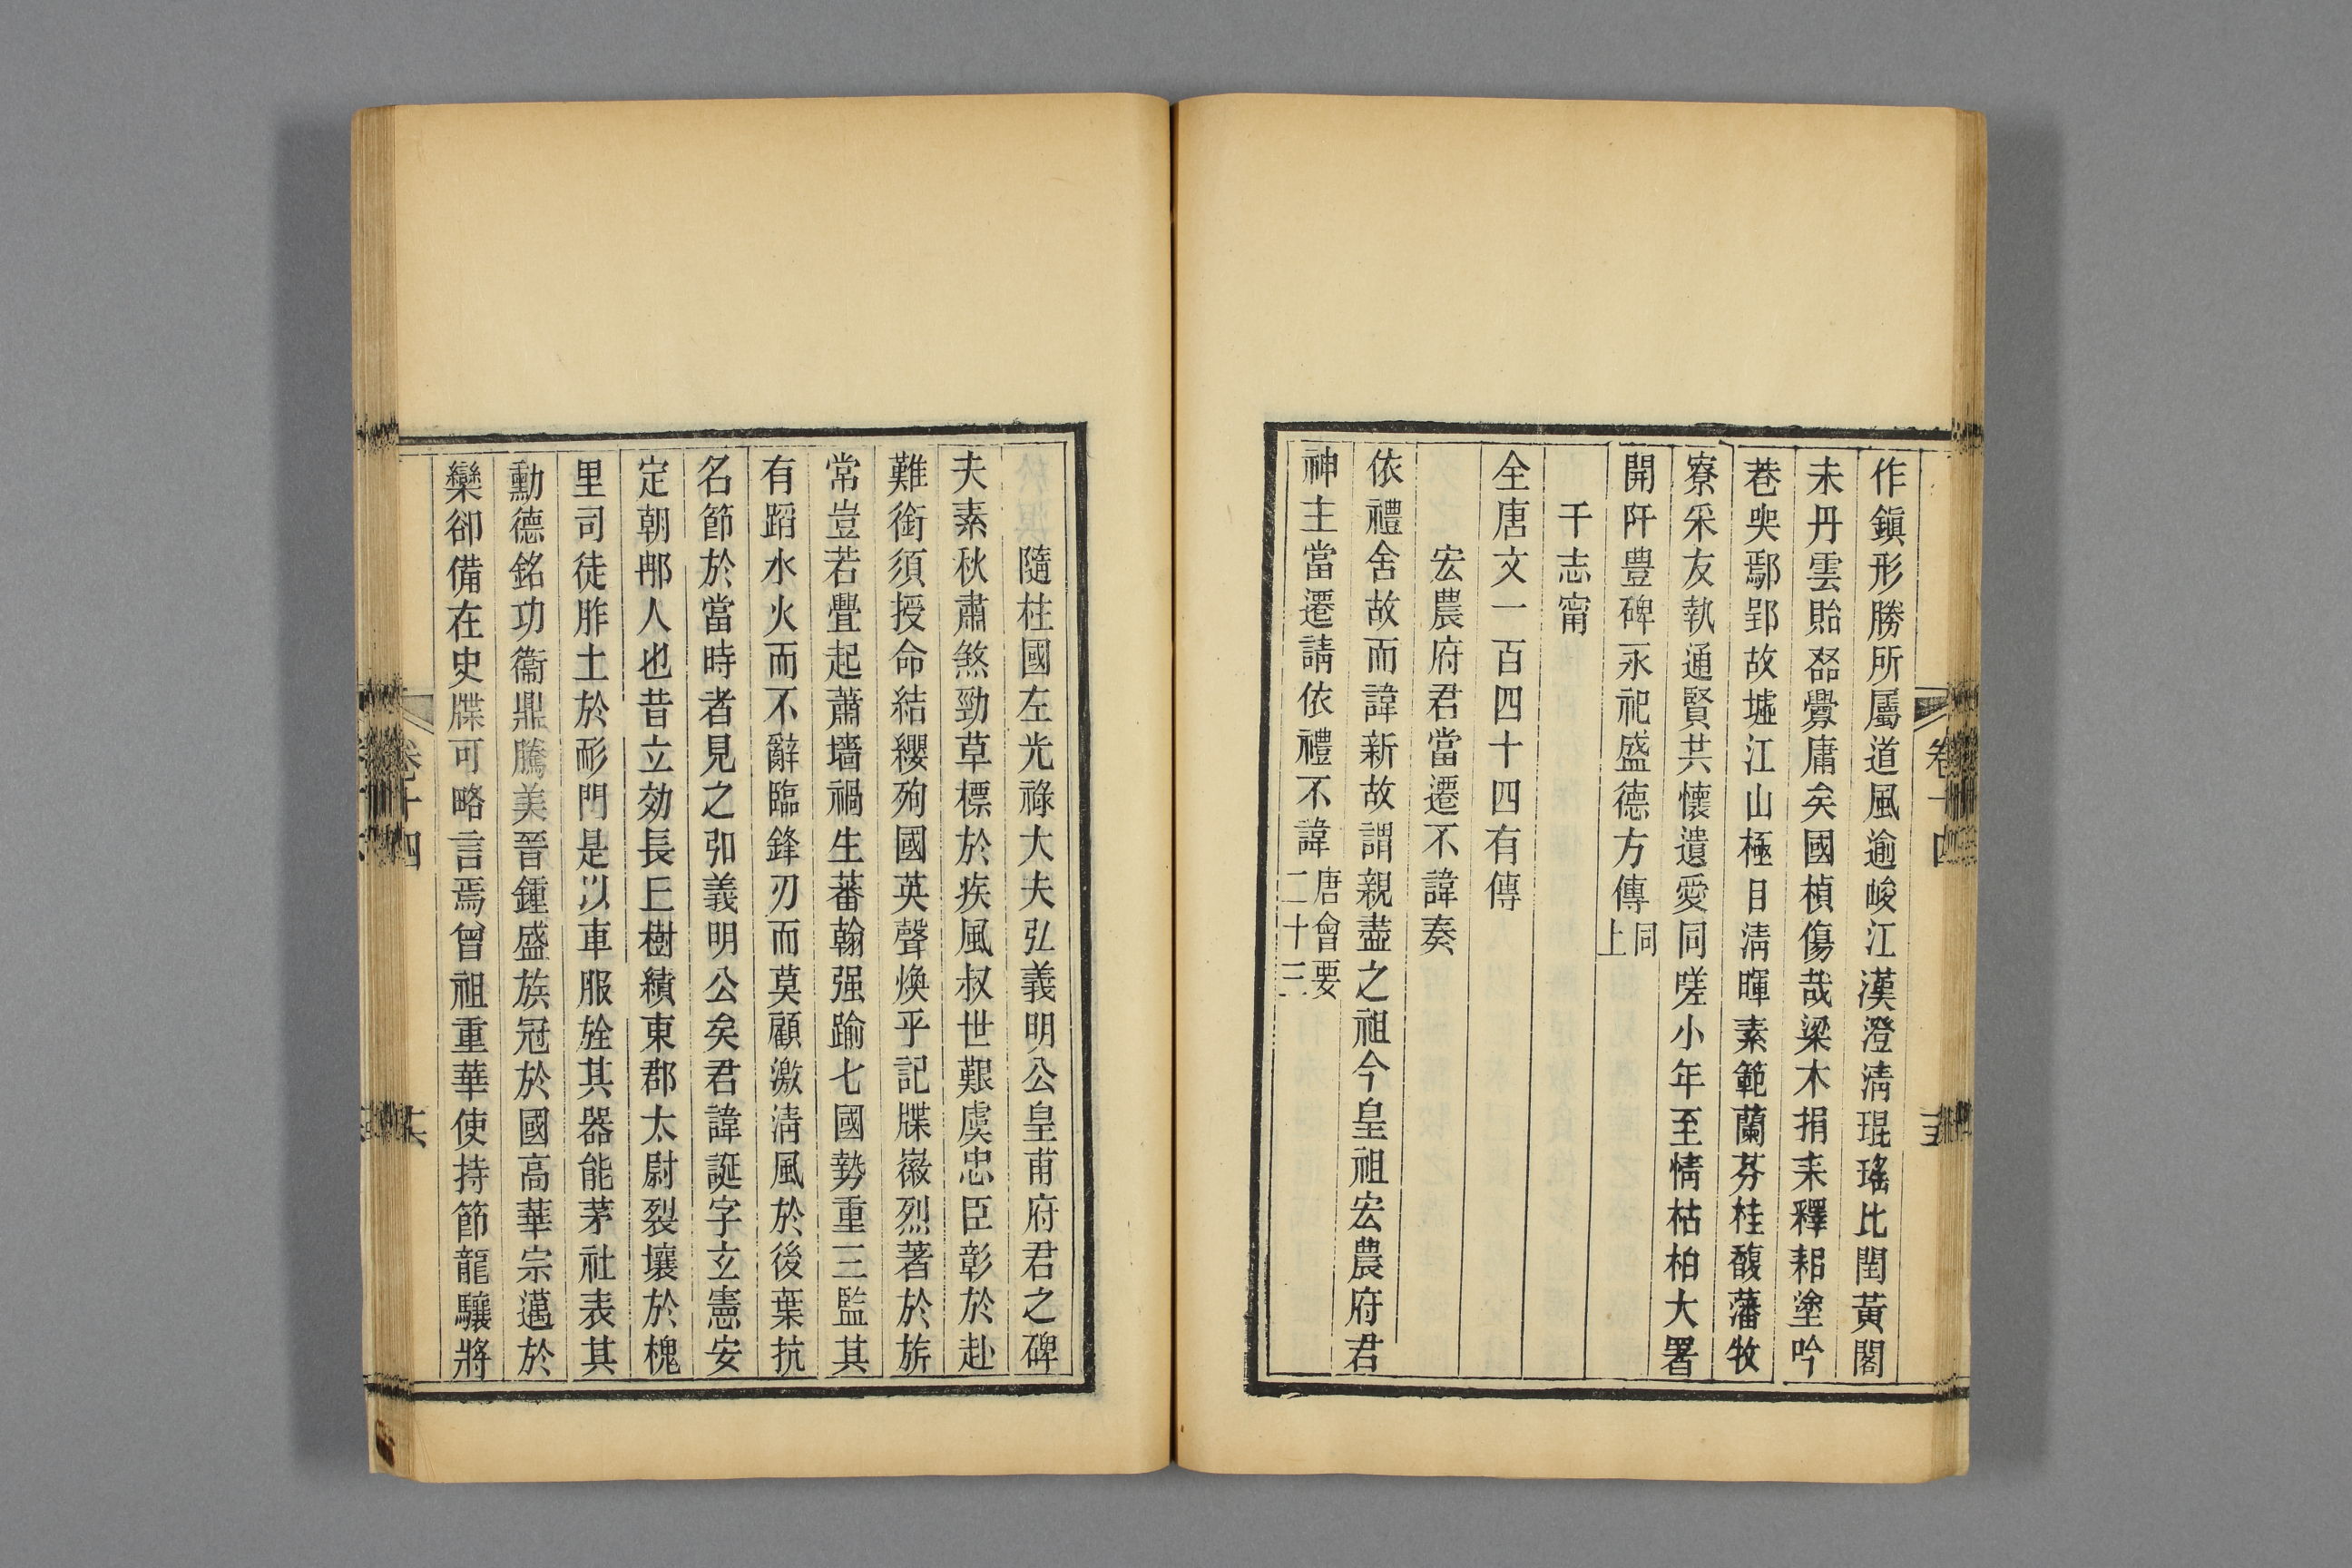 作鎭形勝所屬道風逾峻江漢澄淸琨瑤比閏黃閣
未丹雲貽硌釁庸矣國楨傷哉梁木捐耒釋耜塗吟
巷哭鄢郢故墟江山極目淸暉素範蘭芬桂馥藩牧
寮采友執通賢共懷遺愛同嗟小年至情枯柏大署
開阡豊碑永祀盛德方傳同上
于志甯
全唐文一百四十四有傳
宏農府君當遷不諱奏
依禮舍故而諱新故謂親盡之祖今皇祖宏農府君
神主當遷請依禮不諱唐會要二十三
隨柱國左光祿大夫弘義明公皇甫府君之碑
夫素秋肅煞勁草標於疾風叔世艱虞忠臣彰於赴
難銜須授命結纓殉國英聲煥乎記牒徽烈著於旂
常豈若疊起蕭墻禍生蕃翰强踰七國勢重三監其
有蹈水火而不辭臨鋒刃而莫顧激淸風於後葉抗
名節於當時者見之弘義明公矣君諱誕字玄憲安
定朝那人也昔立効長丘樹績東郡太尉裂壤於槐
里司徒胙土於耏門是以車服旌其器能茅社表其
勳德銘功衞鼎騰美晉鍾盛族冠於國高華宗邁於
欒卻備在史牒可略言焉曾祖重華使持節龍驤將
卷十四